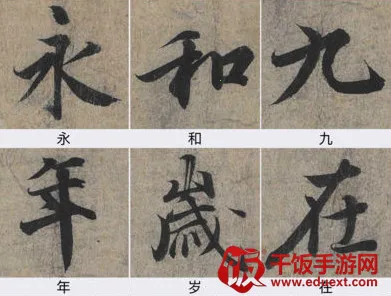 永 和 九
永 和 九
年 歲 在
年 岁 在
饭 干饭手游网
www.eduext.com